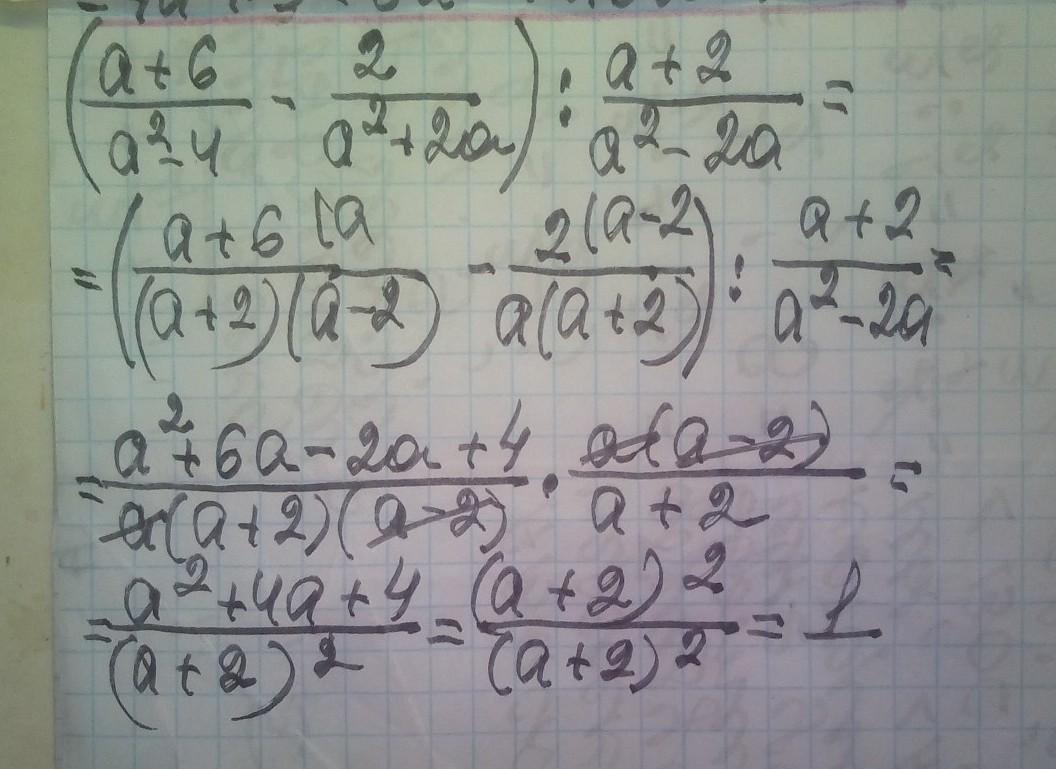 (a+6/a²-4 - 2/a²+2a) : a+2/a²-2a =
= (a+6(a/(a+2)(a-2) - 2(a-2/a(a+2)) : a+2/a²-2a =
= a²+6a-2a+4/a(a+2)(a-2) · a(a-2)/a+2 =
= a²+4a+4/(a+2)² = (a+2)²/(a+2)² = 1